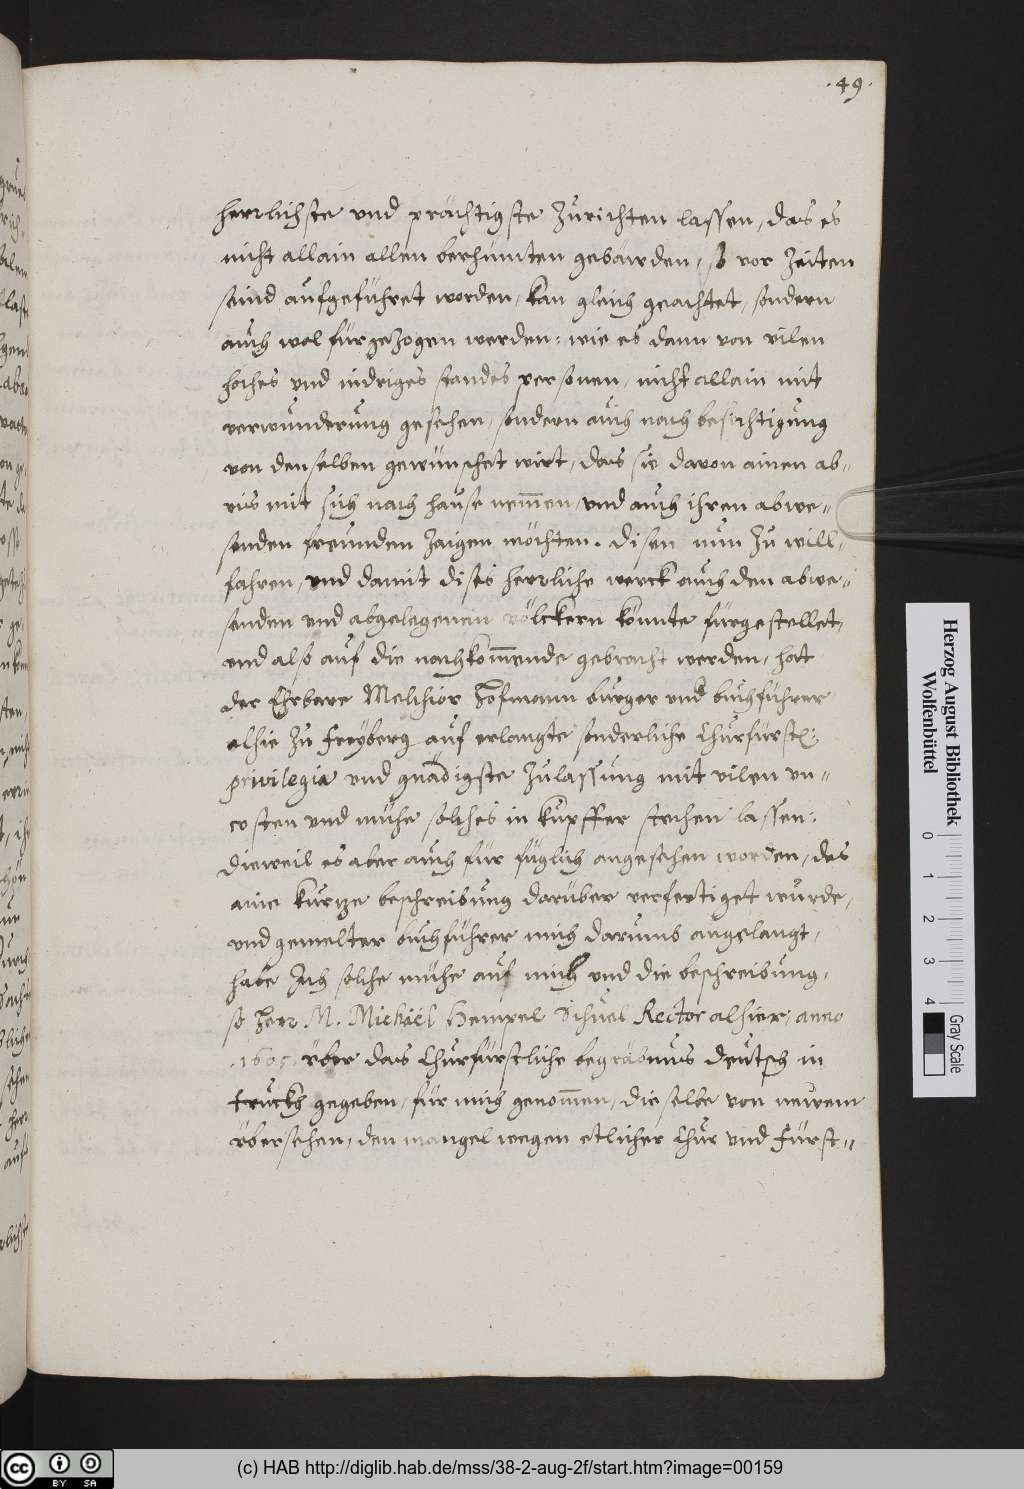 .49.
herrlichste und prächtigste zurichten lassen, das es
nicht allain allen berhümten gebäwden, so vor zeiten
seind aufgeführet worden, kan gleich geachtet, sondern
auch wol fürgezogen werden: wie es dann von vilen
hoches und nidriges standes personen, nicht allain mit
verwunderung gesehen, sondern auch nach besichtigung
von denselben gewünschet wirt, das sie davon ainen ab-
ris mit sich nach hause nem̃en, und auch ihren abwe-
senden freunden zaigen möchten. Disen nun zu will-
fahren, und damit dises herrliche werck auch den abwe-
senden und abgelegenen völckern könnte fürgestellet,
und also auf die nachkom̃ende gebracht werden, hat
der Ehrbare Melchior Hofmann burger und buchführer
alhie zu Freyberg auf erlangte sonderliche Churfürstl:
privilegia und gnädigste zulassung mit vilen un-
costen und mühe solches in kupffer stechen lassen:
Dieweil es aber auch für füglich angesehen worden, das
aine kurtze beschreibung darüber verfertiget wurde,
und gemelter buchführer mich darumb angelangt,
habe Ich solche mühe auf mich und die beschreibung,
so Herr M. Michaël Hempel Schuel Rector alhier, anno
.1605. über das Churfürstliche begräbnus deutsch in
truckh gegeben, für mich genom̃en, dieselbe von newem
übersehen, den mangel wegen etlicher Chur und Fürst-
Herzog August Bibliothek
Wolfenbüttel
0 1 2 3 4
Gray Scale
cc BY SA
(c) HAB http://diglib.hab.de/mss/38-2-aug-2f/start.htm?image=00159